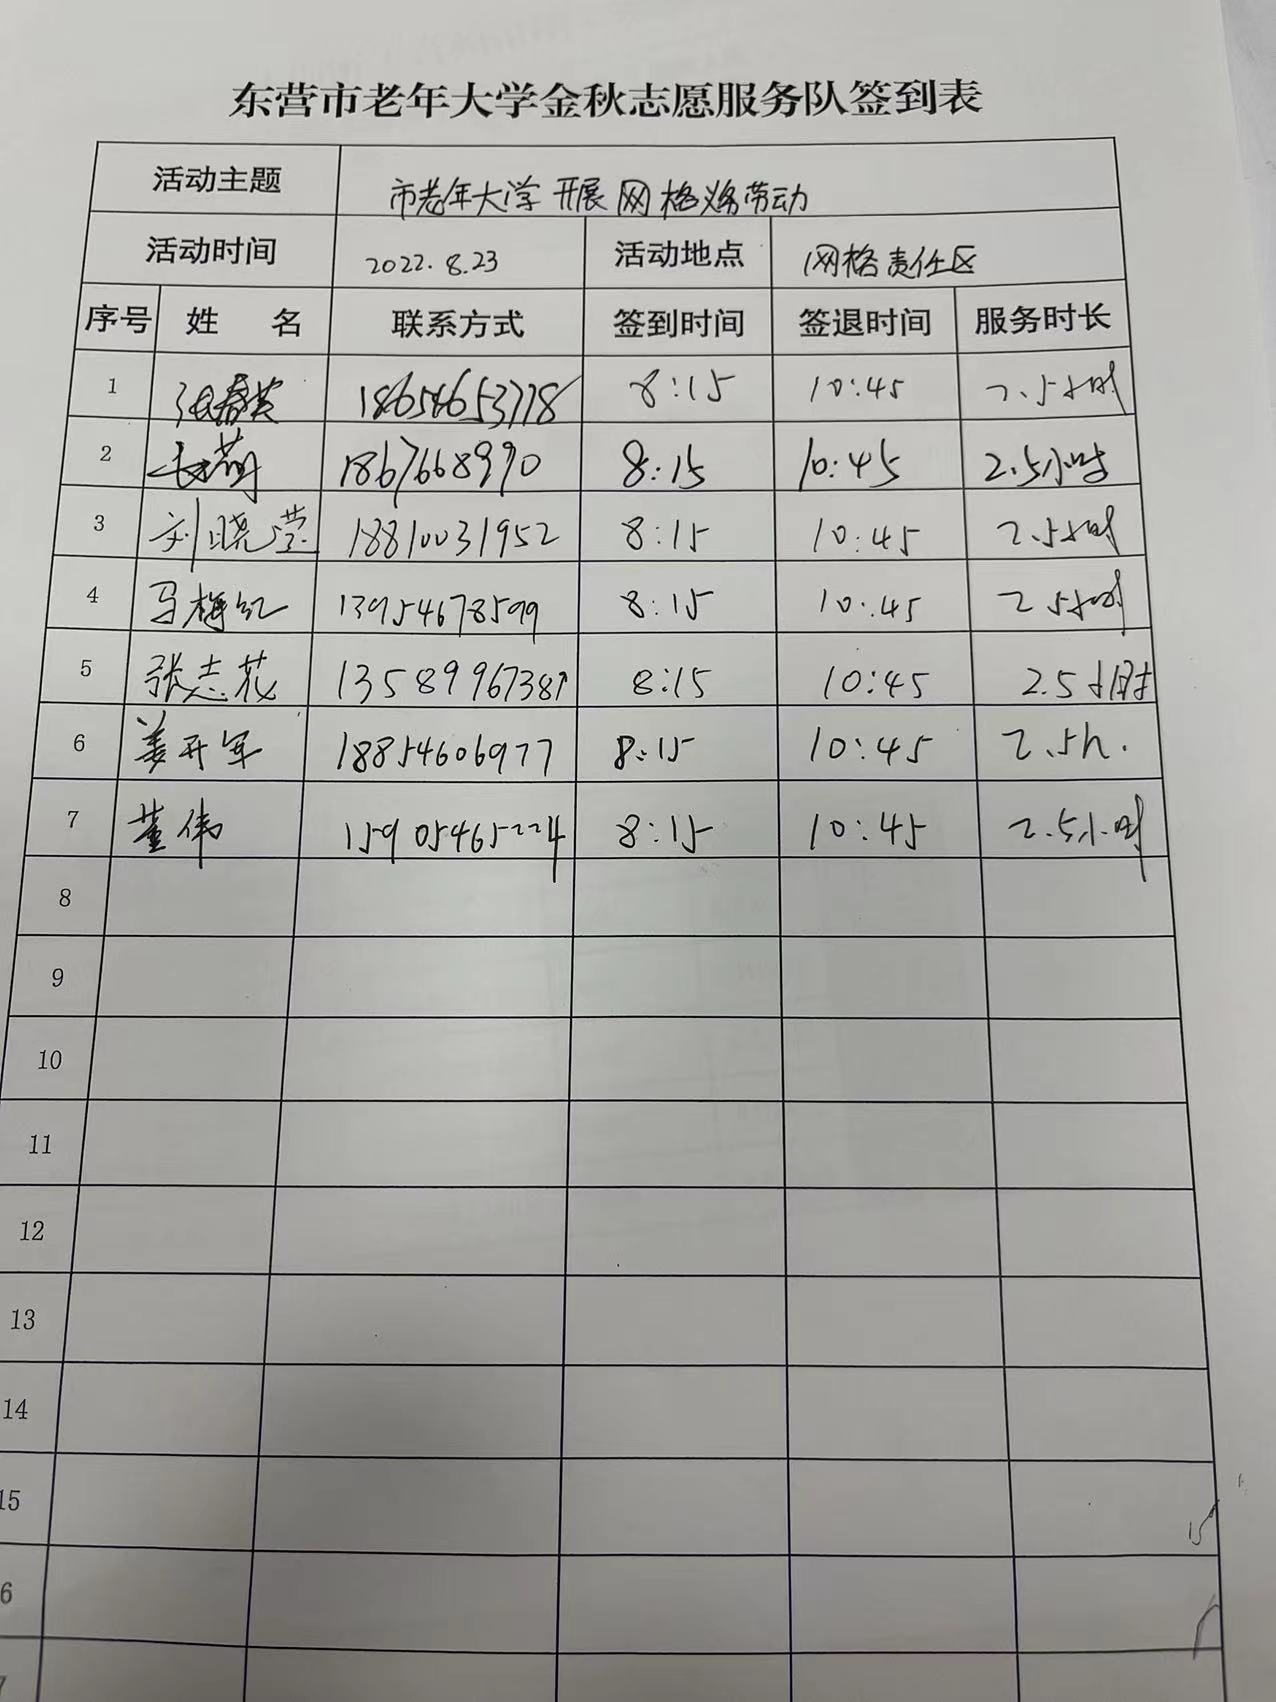 东营市老年大学金秋志愿服务队签到表
活动主题 市老年大学开展网格义务劳动
活动时间 2022.8.23 活动地点 网格责任区
序号 姓 名 联系方式 签到时间 签退时间 服务时长
1 张春英 18654653778 8:15 10:45 2.5小时
2 1867668990 8:15 10:45 2.5小时
3 刘晓莹 18810031952 8:15 10:45 2.5小时
4 马梅红 13954678599 8:15 10:45 2.5小时
5 张志花 13589967387 8:15 10:45 2.5小时
6 姜开军 18854606977 8:15 10:45 2.5h.
7 董伟 15905465224 8:15 10:45 2.5小时
8
9
10
11
12
13
14
15
6
7